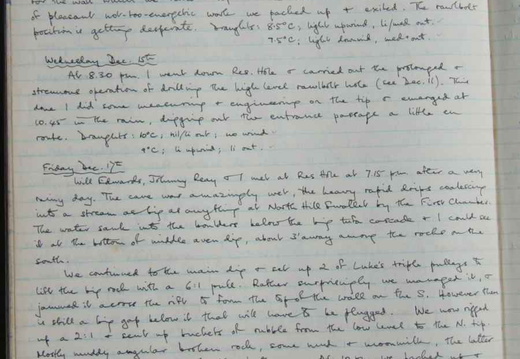 of pleasant not-too-energetic work we packed up & exited. The rawlbolt
position is getting desperate. Draughts: 8.5°C, light upwind, li/med out.
7.5°C, light downwind, med out.
Wednesday Dec. 15th
At 8.30 pm I went down Res. Hole & carried out the prolonged &
strenuous operation of drilling the high level rawlbolt hole (see Dec. 11). This
done I did some measuring & engineering on the tip & emerged at
10.45 in the rain, digging out the entrance passage a little en
route. Draughts: 10°C, nil/li out, no wind.
9°C, li upwind, li out.
Friday Dec. 17th
Will Edwards, Johnny Reay & I met at Res Hole at 7.15 pm after a very
rainy day. The cave was amazingly wet, the heavy rapid drips coalescing
into a stream as big as anything at North Hill Swallet by the First Chamber.
The water sank into the boulders below the big tufa cascade & I could see
it at the bottom of middle aven dip, about 3' away among the rocks on the
south.
We continued to the main dip & set up 2 of Luke's triple pulleys to
lift the big rock with a 6:1 pull. Rather surprisingly we managed it, &
jammed it across the rift to form the top of the wall on the S. However there
is still a big gap below it that will have to be plugged. We now rigged
up a 2:1 & sent up buckets of rubble from the low level to the N. tip.
Mostly muddy angular broken rock, some mud & moonmilk, the latter